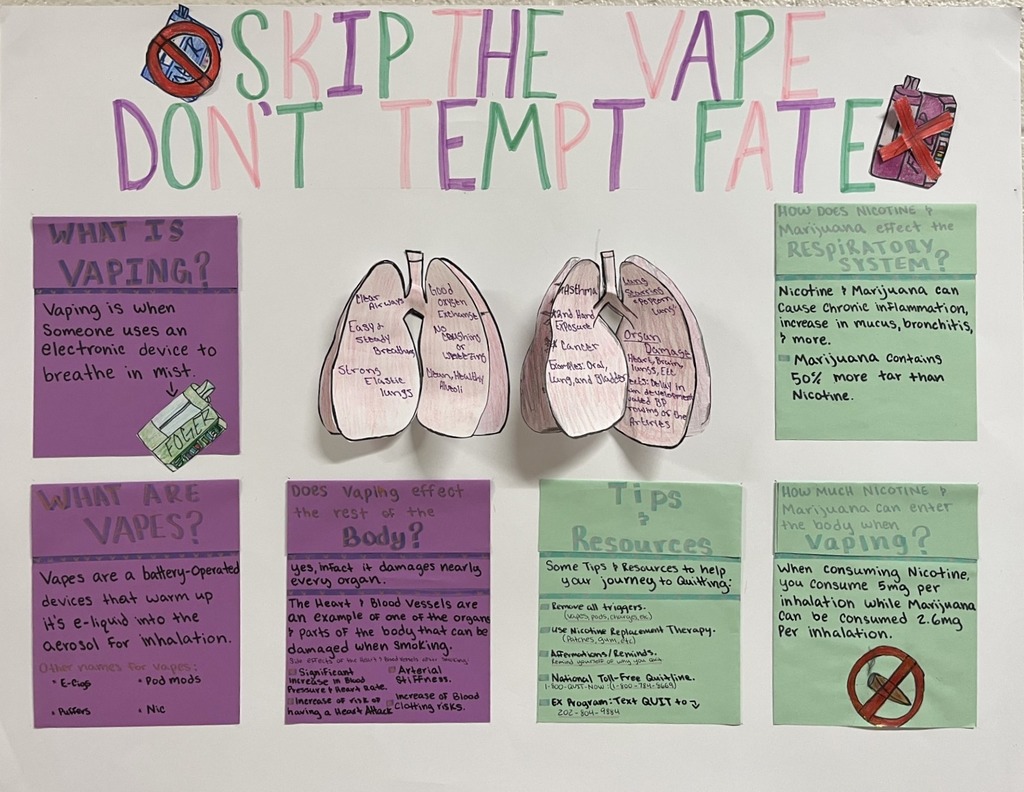 SKIP THE VAPE
DON'T TEMPT FATE
WHAT IS
VAPING?
Vaping is when
Someone uses an
electronic device to
breathe in mist.
FOGER
Clear
Airways
Easy &
steady
Breathing
Strong
Elastic
lungs
Good
Oxygen
Exchange
No
Coughing
or
Wheezing
Clean, Healthy
Alveoli
Asthma
2nd Hand
Exposure
Cancer
Examples: Oral,
Lung, and Bladder
Lung
Scarring
"Popcorn
Lung"
Organ
Damage
Heart, Brain,
lungs, Etc
Delay in
development
BP
of the
Arteries
HOW DOES NICOTINE &
Marijuana effect the
RESPIRATORY
SYSTEM?
Nicotine & Marijuana can
Cause Chronic inflammation,
increase in mucus, bronchitis,
& more.
Marijuana contains
50% more tar than
Nicotine.
WHAT ARE
VAPES?
Vapes are a battery-Operated
devices that warm up
it's e-liquid into the
aerosol for inhalation.
Other names for vapes:
• E-Cigs
• Pod mods
• Puffers
• Nic
Does Vaping effect
the rest of the
Body?
yes, infact it damages nearly
every organ.
The Heart & Blood Vessels are
an example of one of the organs
& parts of the body that can be
damaged when smoking.
Side effects of the Heart & Blood Vessels after Smoking:
Significant
Increase in Blood
Pressure & Heart Rate.
Arterial
Stiffness.
Increase of risk of
having a Heart Attack
Increase of Blood
Clotting risks.
Tips
&
Resources
Some Tips & Resources to help
your journey to Quitting:
Remove all triggers.
(vapes, pods, chargers, etc)
Use Nicotine Replacement Therapy.
(Patches, gum, etc)
Affirmations/Reminds.
Remind yourself of why you quit
National Toll-Free Quitline.
1-800-QUIT-NOW (1-800-784-8669)
EX Program: Text QUIT to
202-804-9884
HOW MUCH NICOTINE &
Marijuana can enter
the body when
Vaping?
When consuming Nicotine,
you consume 5mg per
inhalation while Marijuana
can be consumed 2.6mg
Per inhalation.